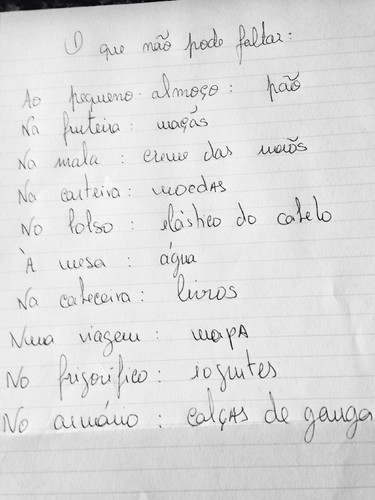 O que não pode faltar:
Ao pequeno-almoço: pão
Na fruteira: maçãs
Na mala: creme das mãos
Na carteira: moedas
No bolso: elástico do cabelo
À mesa: água
Na cabeceira: livros
Numa viagem: mapa
No frigorífico: iogurtes
No armário: calças de ganga